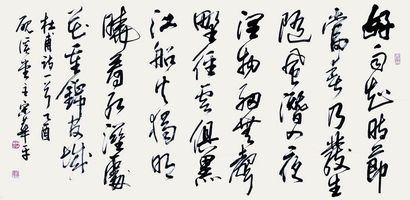 好雨知时節
當春乃發生
随風潛入夜
润物细無聲
野徑雲俱黑
江船火獨明
曉看红濕處
花重錦官城
杜甫詩一首 乙酉